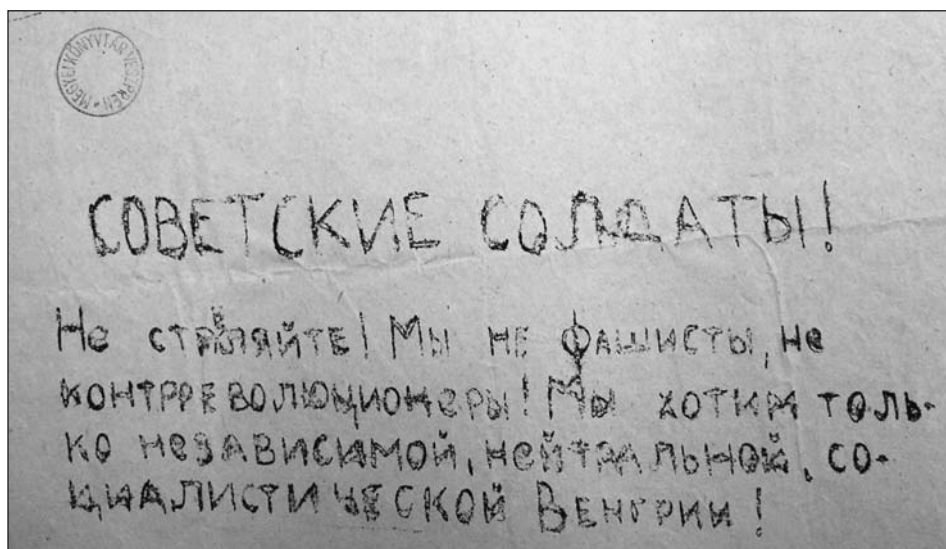 MEGYEI KÖNYVTÁR VESZPRÉM
СОВЕТСКИЕ СОЛДАТЫ!
Не стреляйте! Мы не фашисты, не
контрреволюционеры! Мы хотим толь-
ко независимой, нейтральной, со-
циалистической Венгрии!